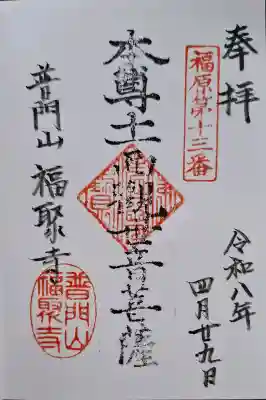 奉拝
福原第十三番
令和八年
四月廿九日
本尊十一面観世音菩薩
普門山 福聚寺
普門山
福聚寺